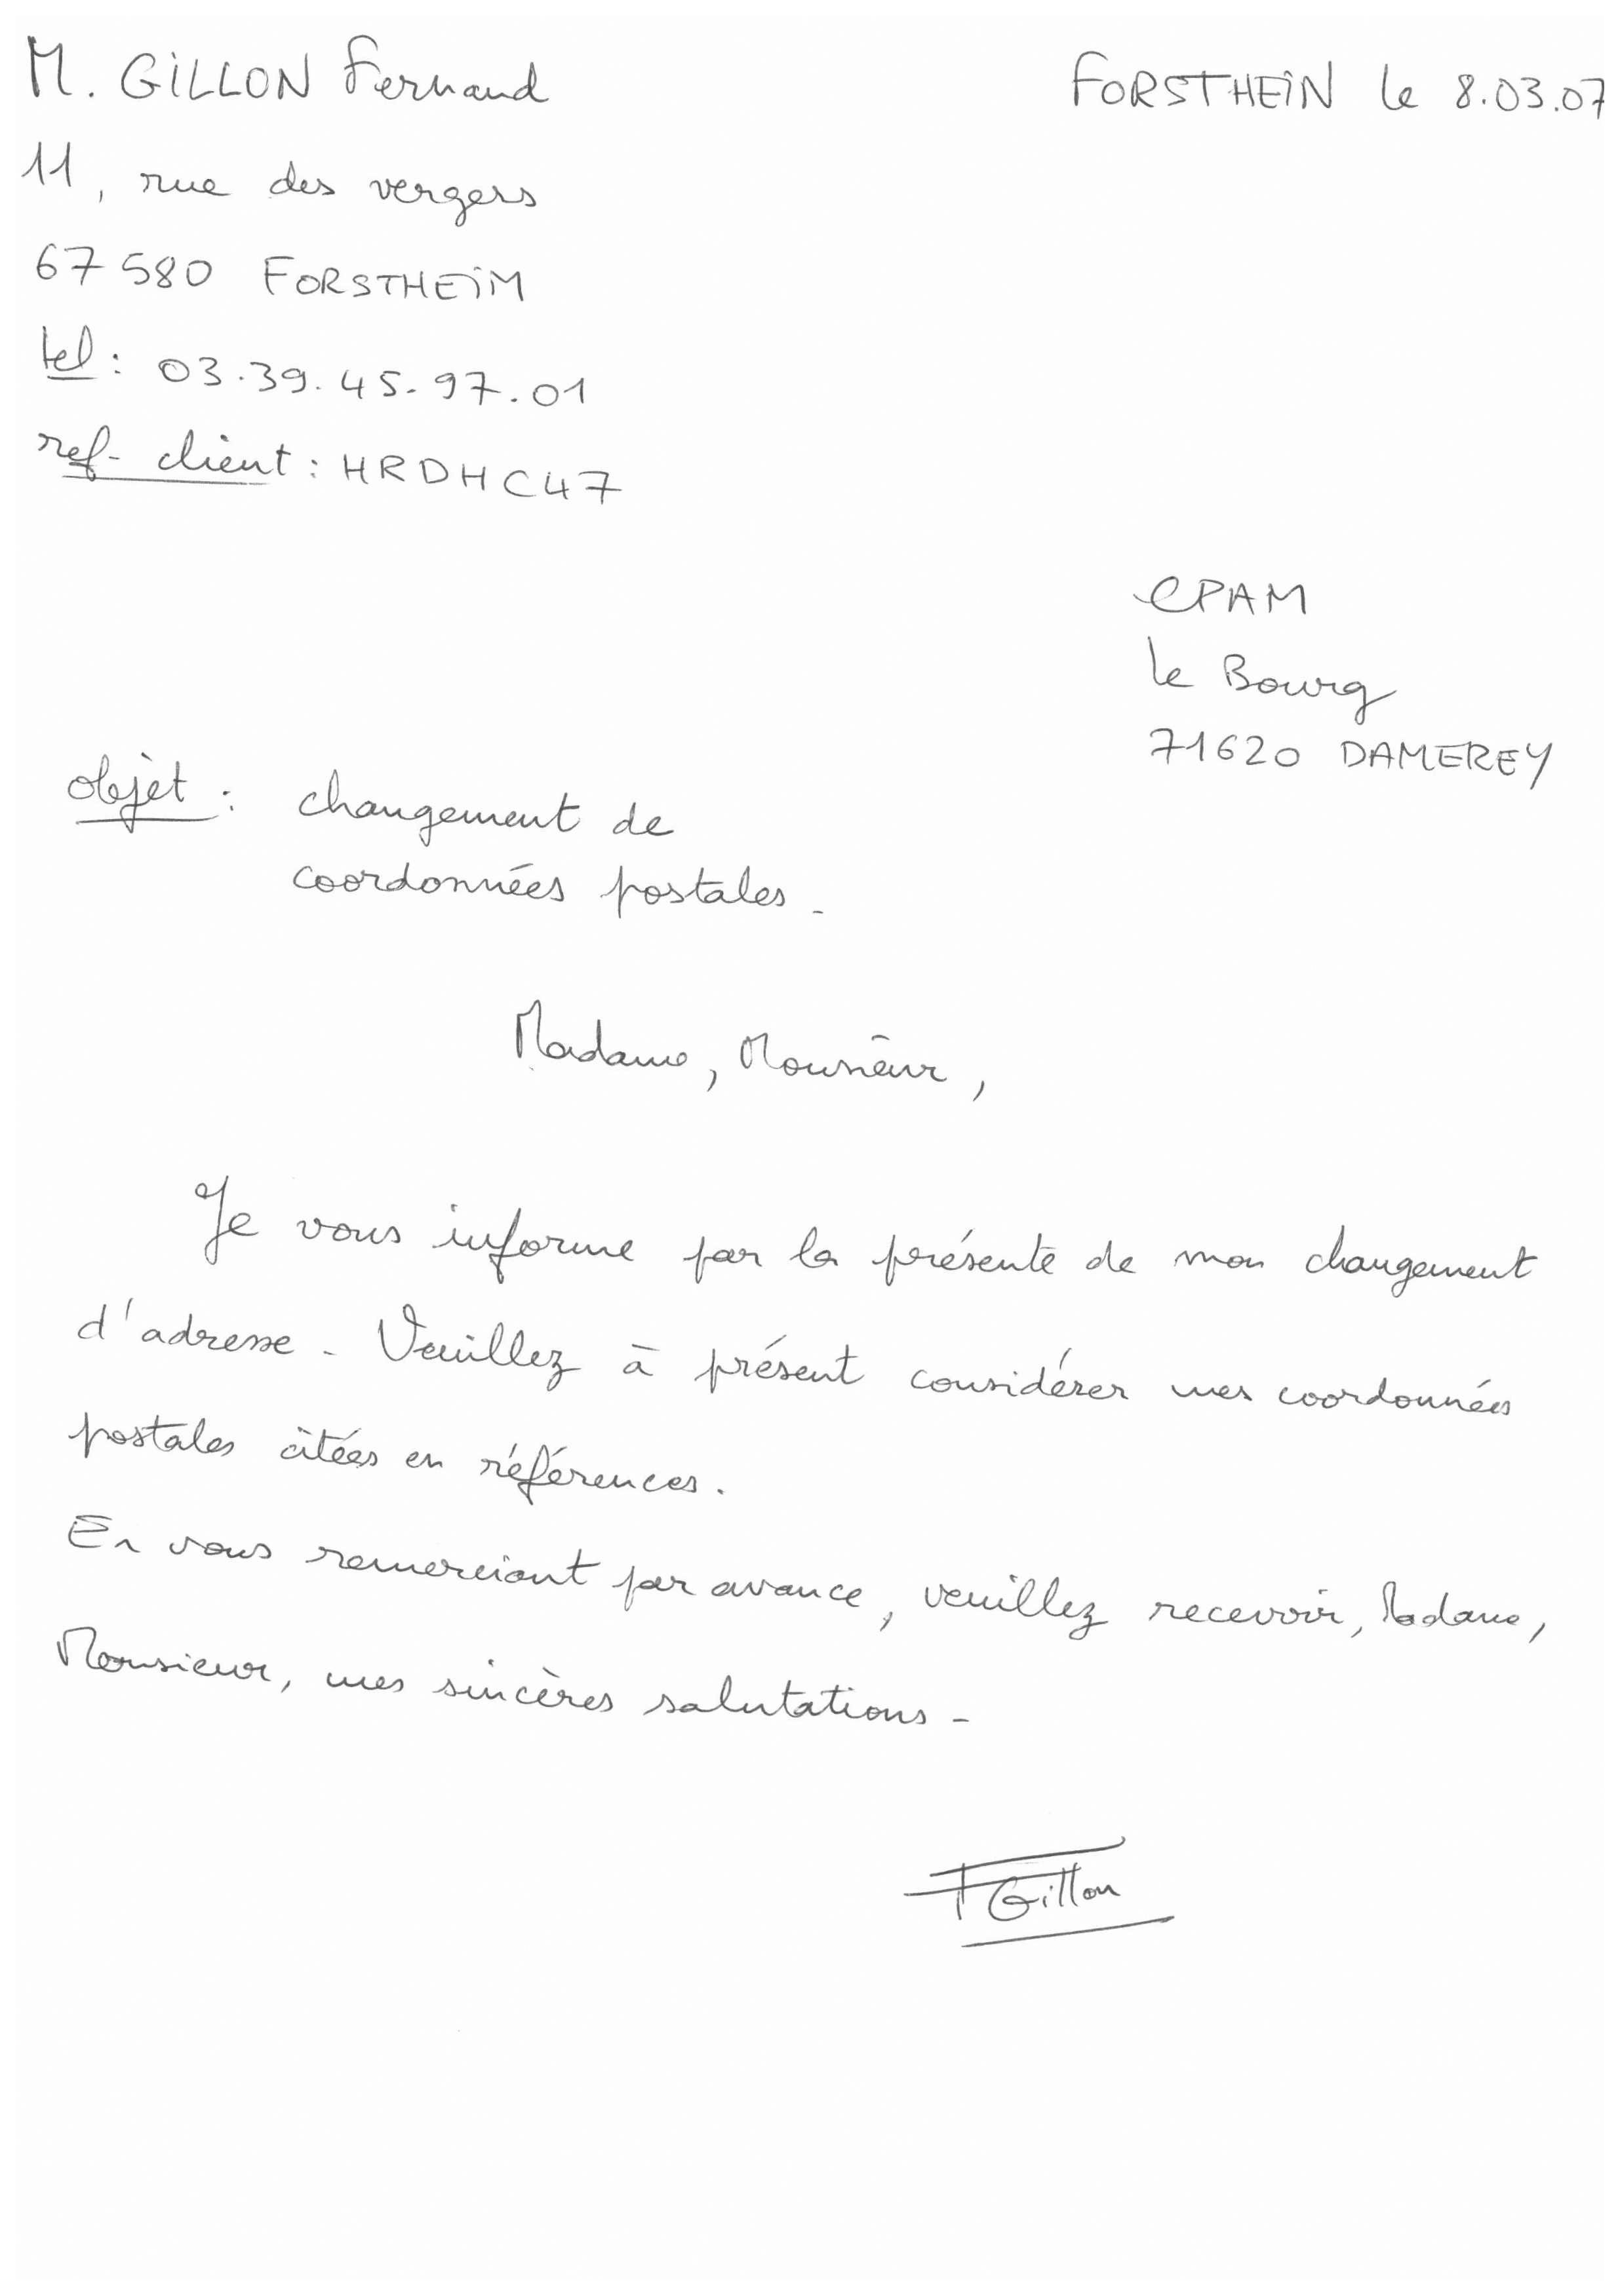 M. GILLON Fernand
FORSTHEIN le 8.03.07
11, rue des vergers
67 580 FORSTHEIM
tel : 03.39.45.97.01
ref- client : HRDHC47
CPAM
le Bourg
71620 DAMEREY
objet : changement de
coordonnées postales.
Madame, Monsieur,
Je vous informe par la présente de mon changement
d'adresse. Veuillez à présent considérer mes coordonnées
postales citées en références.
En vous remerciant par avance, veuillez recevoir, Madame,
Monsieur, mes sincères salutations.
F Gillon